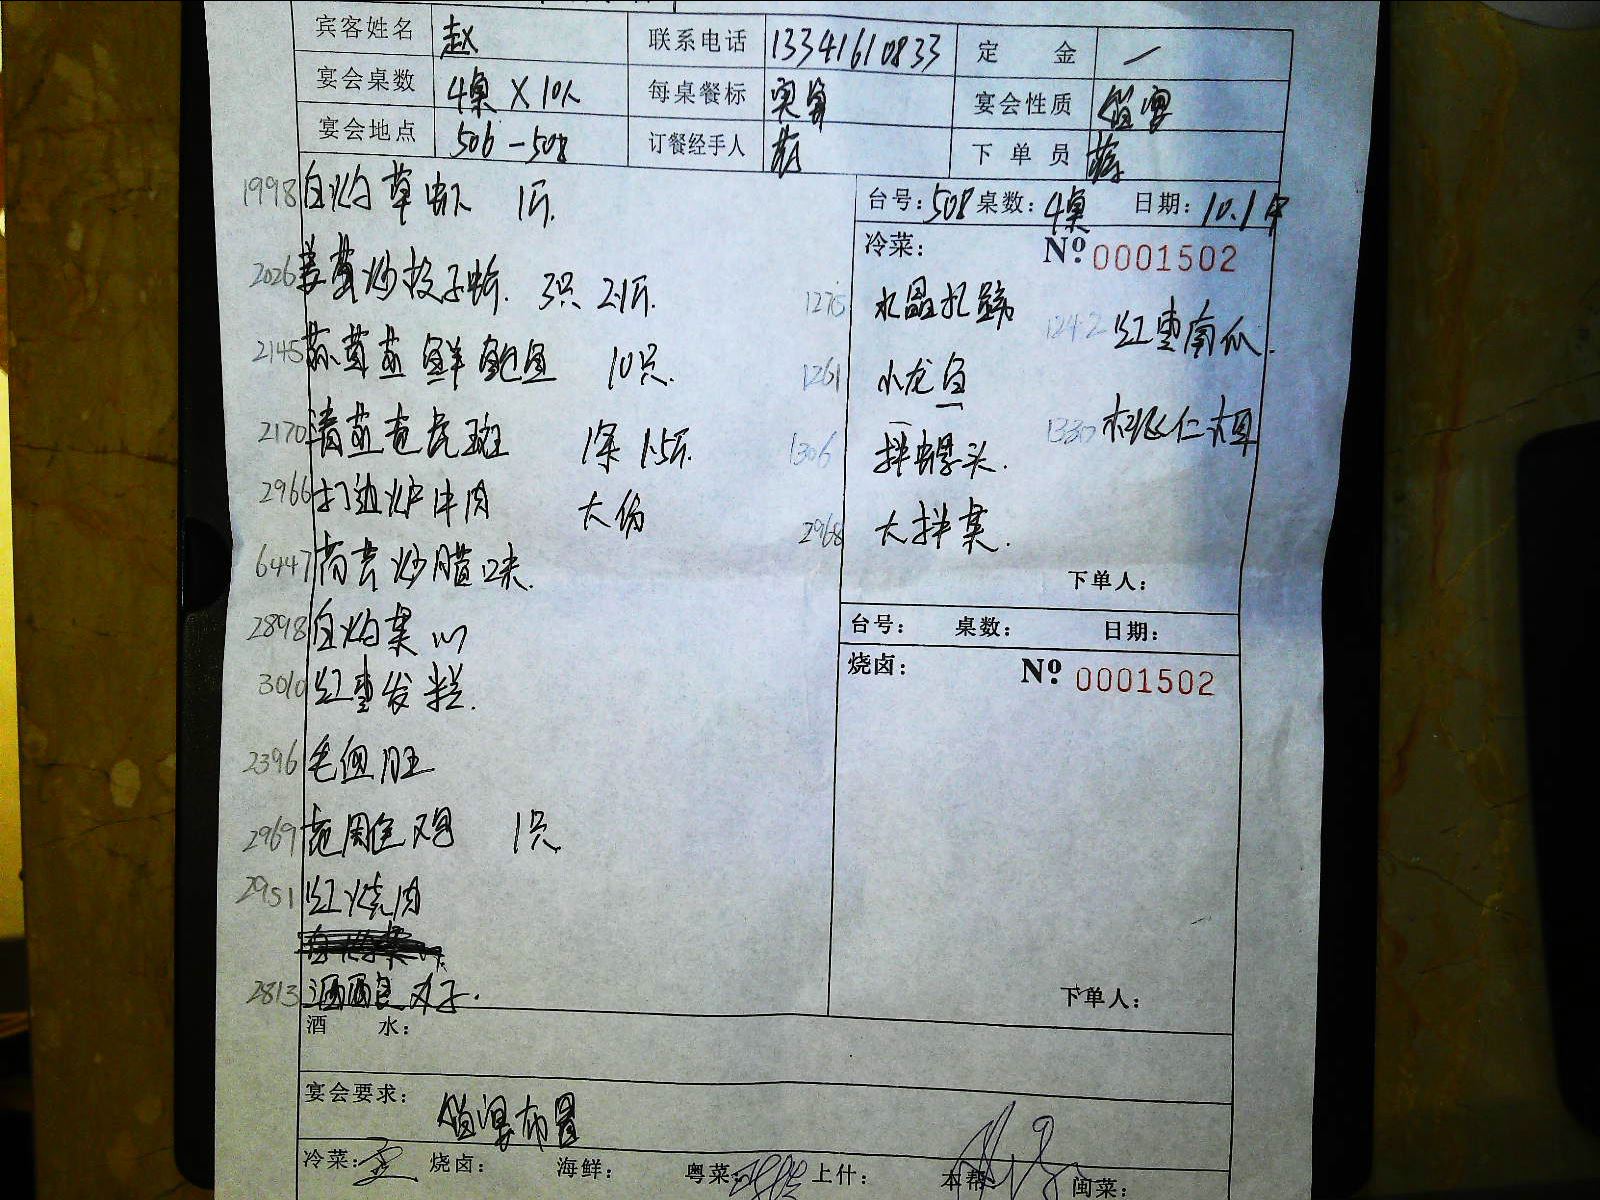 宾客姓名 赵 联系电话 13341610833 定 金 一
宴会桌数 4桌×10人 每桌餐标 实算 宴会性质
宴会地点 506-508 订餐经手人 下单员
1998 白灼草虾 1斤.
2026 姜葱炒 3只 2.1斤.
2145 蒜茸蒸鲜鲍鱼 10只.
2170 清蒸老虎斑 1条 1.5斤.
2966 打边炉牛肉 大份
6447 荷芹炒腊味.
2898 白灼菜心
3010 红枣发糕.
2396 毛血旺
2969 鸡 1只
2951 红烧肉
2813 丸子.
台号: 508 桌数: 4桌 日期: 10.1中
冷菜: Nº 0001502
1275 水晶扎蹄
1242 红枣南瓜.
1261 小龙鱼
1306 拌螺头.
桃仁木耳
2968 大拌菜.
下单人:
台号: 桌数: 日期:
烧卤: Nº 0001502
下单人:
酒 水:
宴会要求: 布置
冷菜: 烧卤: 海鲜: 粤菜: 上什: 本帮 闽菜: